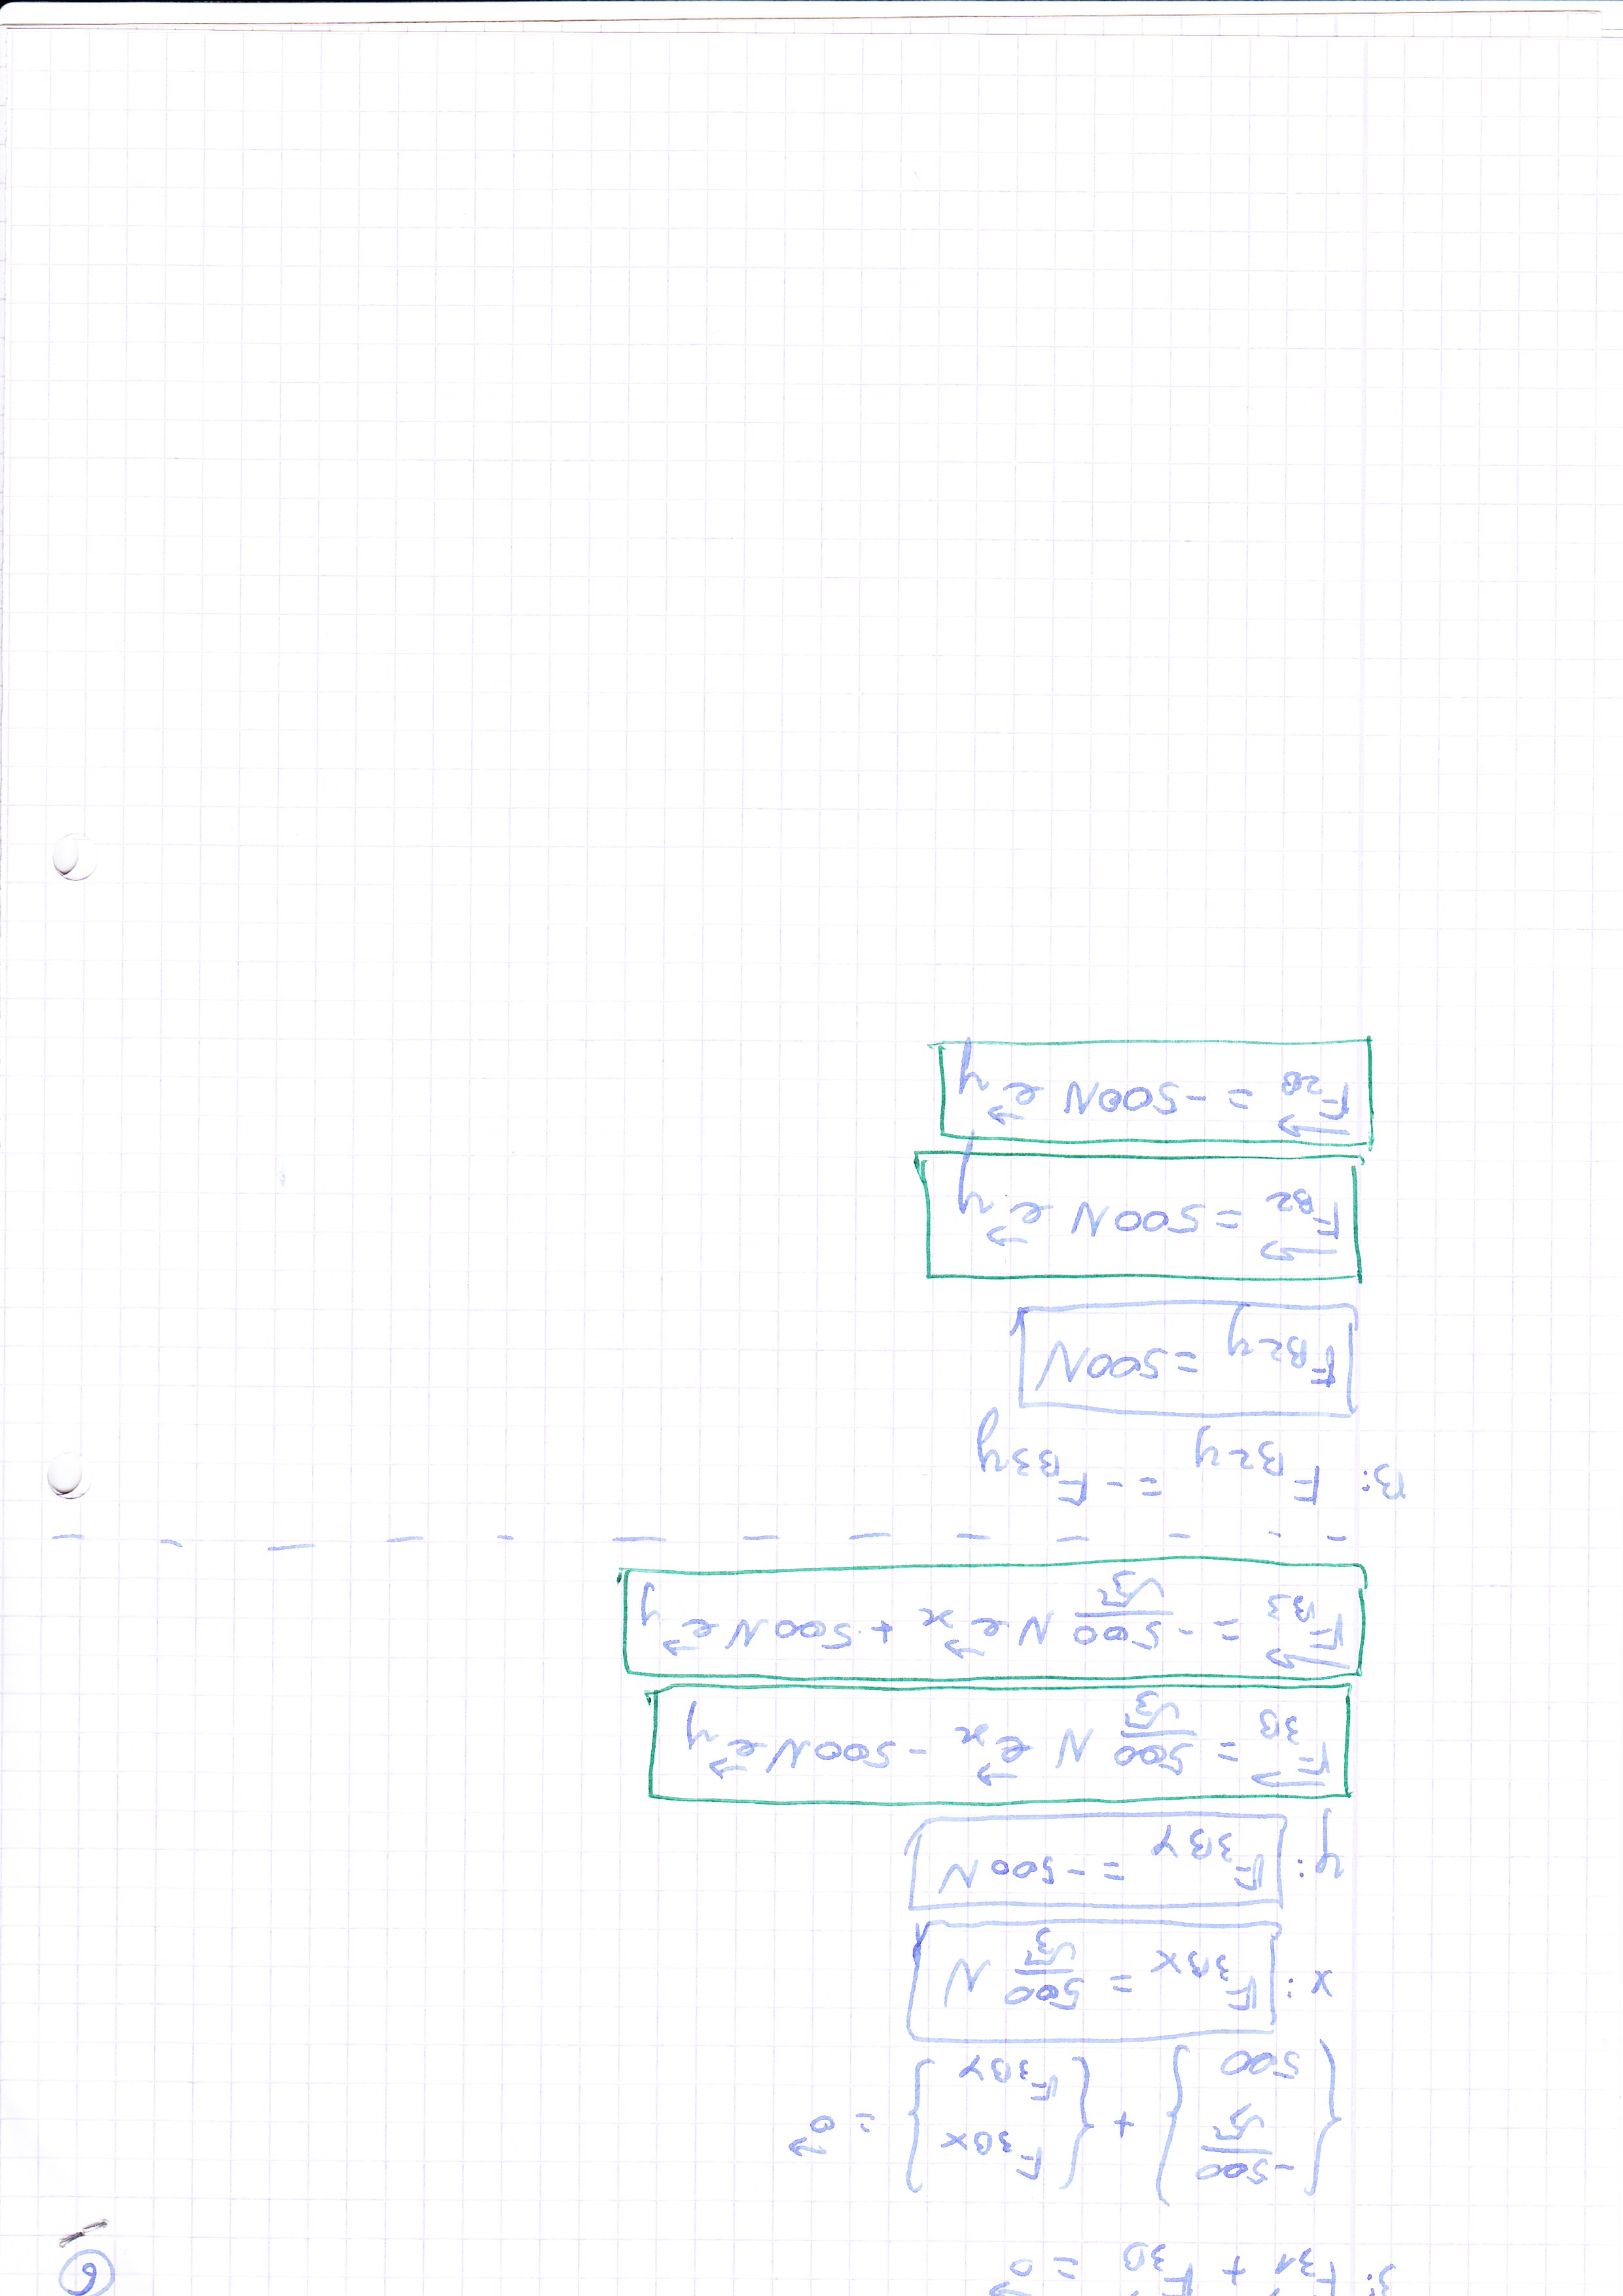 6
3: F⃗₃₁ + F⃗₃B = 0⃗
{-500/√3; 500} + {F₃Bx; F₃By} = 0⃗
x: F₃Bx = 500/√3 N
y: F₃By = -500 N
F⃗₃B = 500/√3 N e⃗x - 500N e⃗y
F⃗B₃ = -500/√3 N e⃗x + 500N e⃗y
B: FB₂y = -FB₃y
FB₂y = 500N
F⃗B₂ = 500N e⃗y
F⃗₂B = -500N e⃗y